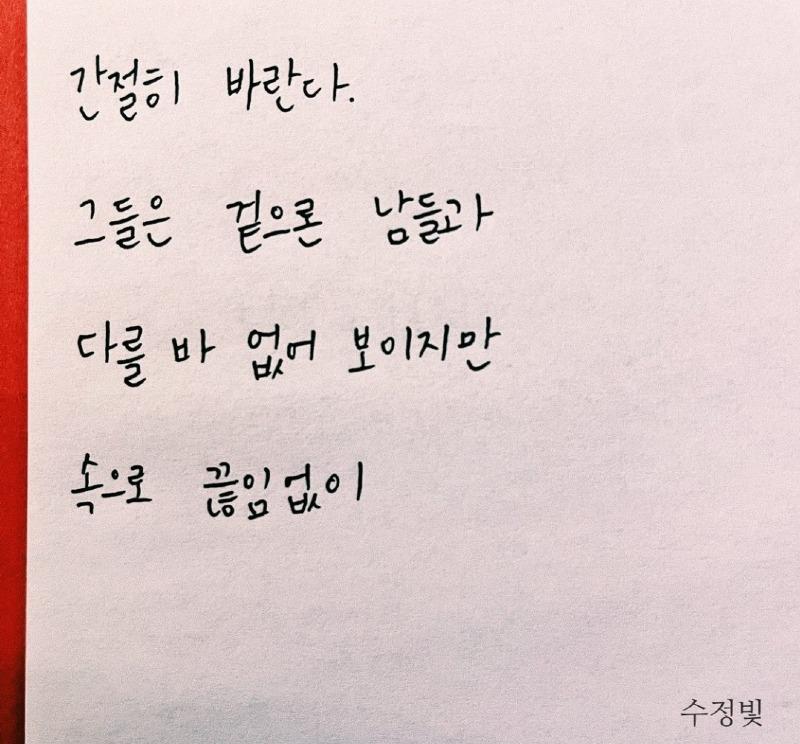 간절히 바란다.
그들은 겉으론 남들과
다를 바 없어 보이지만
속으로 끊임없이
수정빛